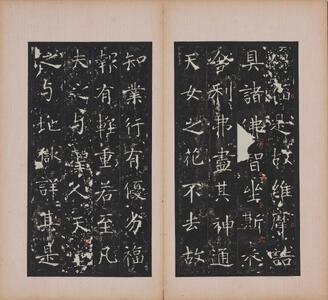 是故維摩詰
具諸佛智坐斯
舍利弗盡其神通
天女之花不去故
知業行有優劣福
報有輕重若至凡
夫之与聖人天
之与地獄詳其是